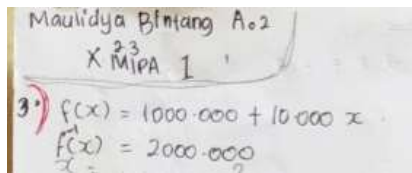 Maulidya Bintang A.2
X MIPA 1
23
3.) f(x) = 1000.000 + 10.000 x
f⁻¹(x) = 2000.000
x =